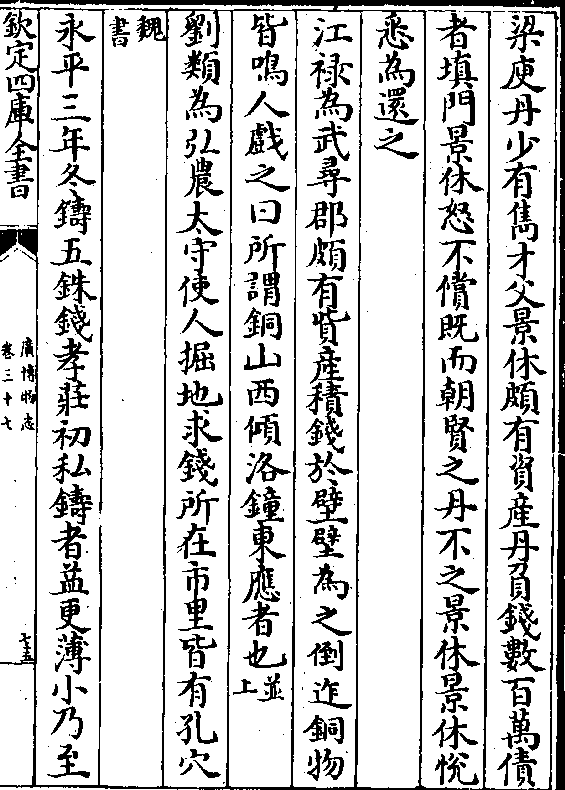 梁庾丹少有雋才父景休頗有資産丹負錢數百萬債
者填門景休怒不償既而朝賢之丹不之景休景休悅
悉為還之
江祿為武尋郡頗有貲産積錢於壁壁為之倒迮銅物
皆鳴人戲之曰所謂銅山西傾洛鐘東應者也並上
劉類為弘農太守使人掘地求錢所在市里皆有孔穴
魏書
永平三年冬鑄五銖錢孝莊初私鑄者益更薄小乃至
欽定四庫全書
廣博物志
卷三十七
七五